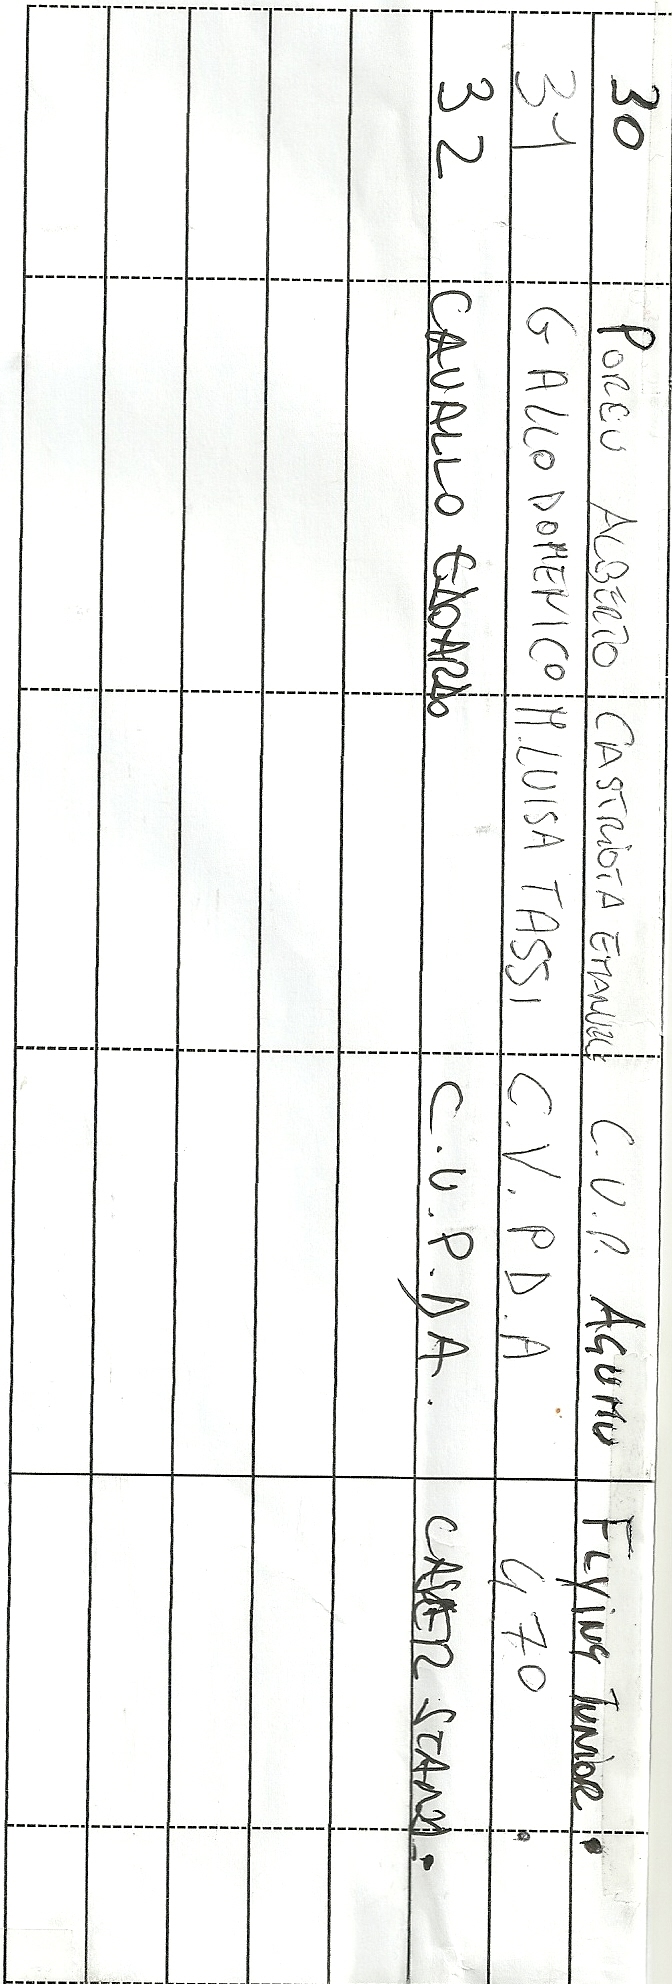 30 PORCU ALBERTO CASTRIOTA EMANUELE C.V.P. AGUMU FLYING JUNIOR •
31 GALLO DOMENICO M.LUISA TASSI C.V.P.D.A 470 •
32 CAVALLO EDOARDO C.V.P.D.A. LASER STAND. •